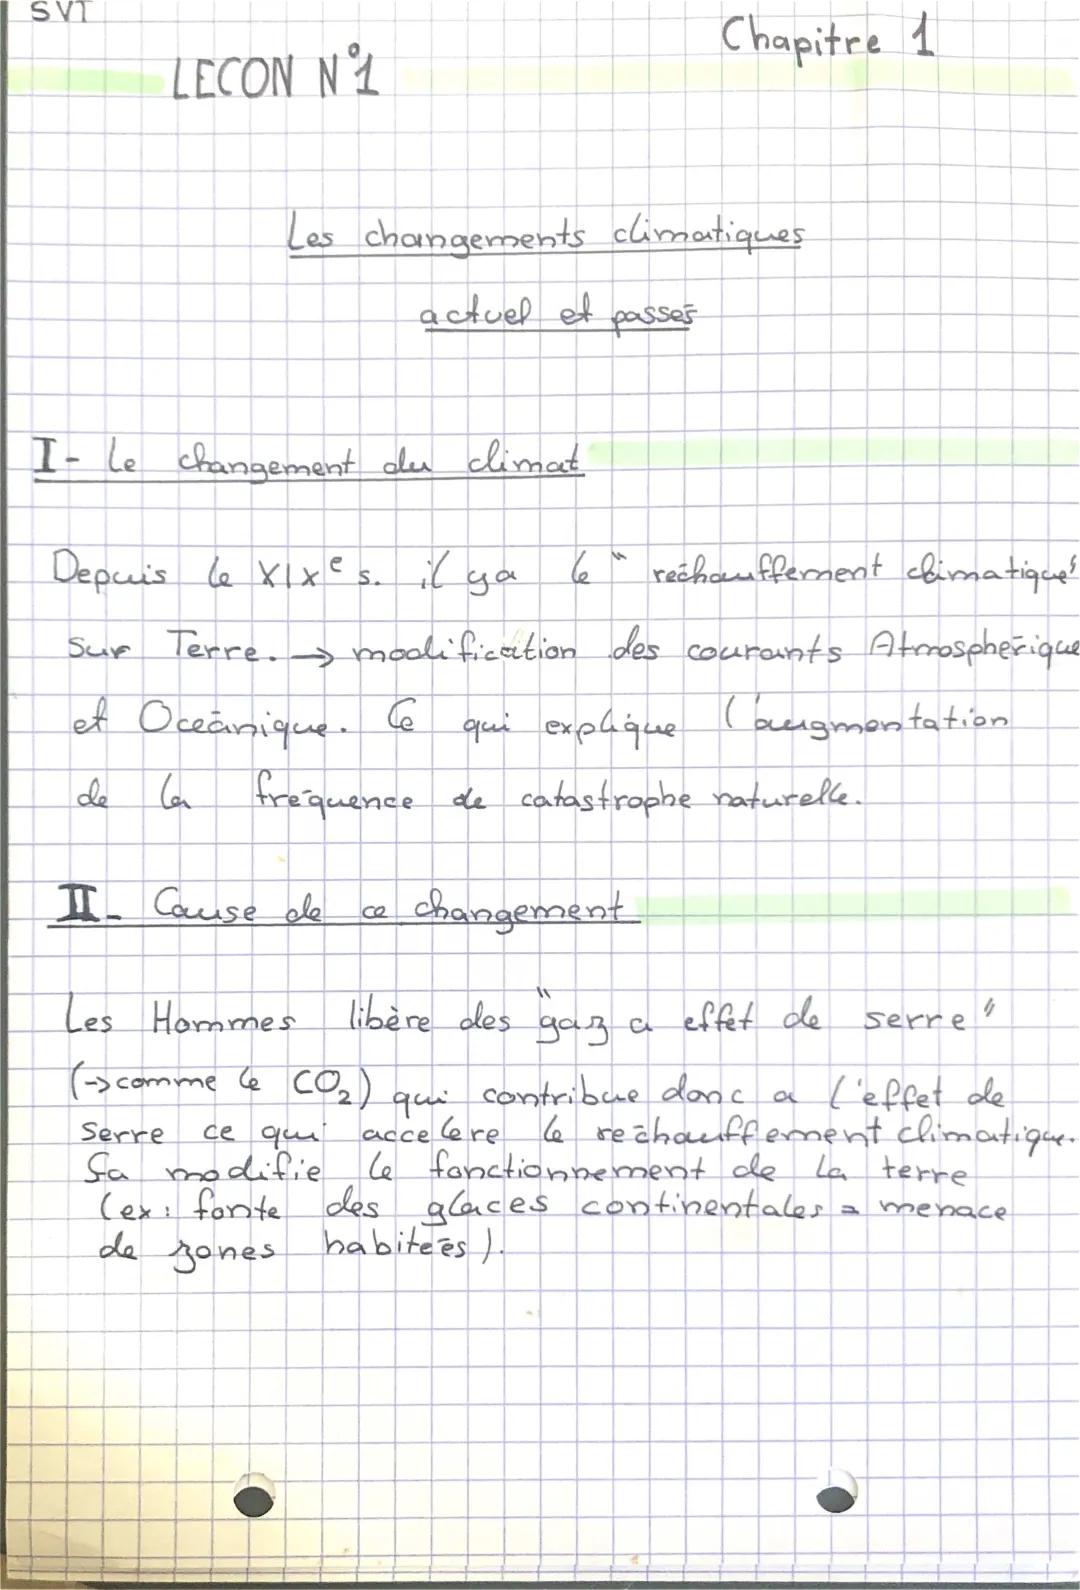 SVT
Chapitre 1
LECON N°1
Les changements climatiques
actuel et passés
I- Le changement du climat
Depuis le XIXe s. il ya le "réchauffement climatique"
sur Terre. → modification des courants Atmosphérique
et Océanique. Ce qui explique l'augmentation
de la fréquence de catastrophe naturelle.
II- Cause de ce changement
Les Hommes libère des "gaz a effet de serre"
(→ comme le CO2) qui contribue donc a l'effet de
serre ce qui accelere le réchauffement climatique.
Ça modifie le fonctionnement de la terre
(ex: fonte des glaces continentales = menace
de zones habitées).